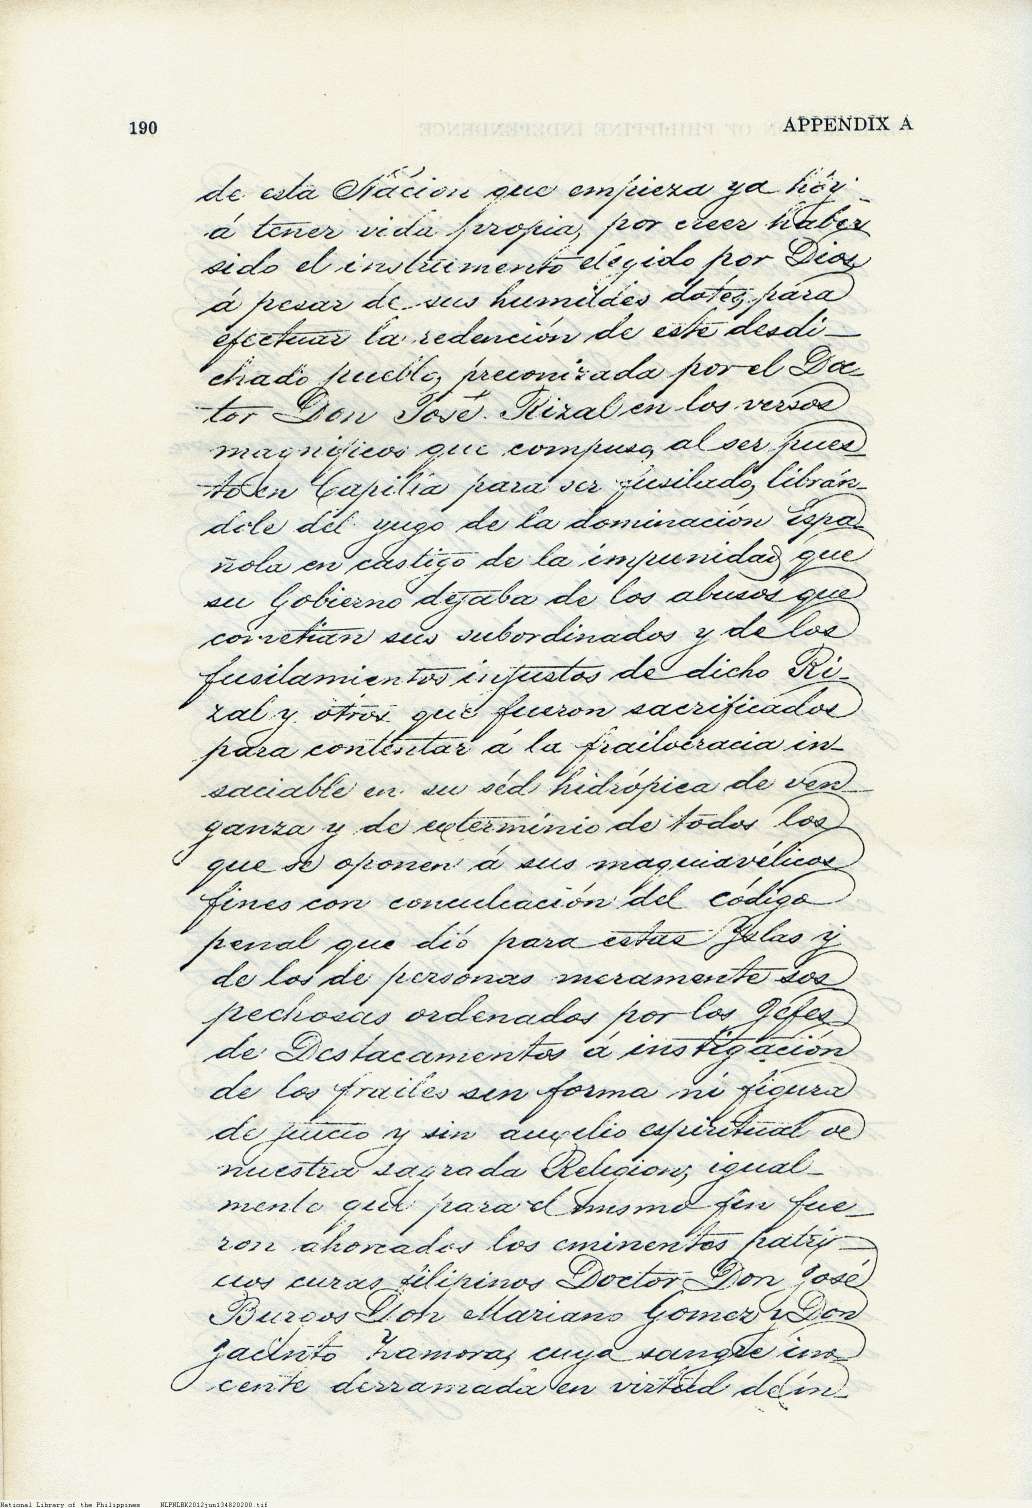 190
APPENDIX A
de esta Nacion que empieza ya hoy
á tener vida propia, por creer haber
sido el instrumento elegido por Dios,
á pesar de sus humildes dotes, para
efectuar la redención de este desdi-
chado pueblo, preconizada por el Doc-
tor Don José Rizal en los versos
magnificos que compuso, al ser pues-
to en Capilla para ser fusilado, librán-
dole del yugo de la dominación Espa-
ñola en castigo de la impunidad que
su Gobierno dejaba de los abusos que
cometian sus subordinados y de los
fusilamientos injustos de dicho Ri-
zal y otros que fueron sacrificados
para contentar á la frailocracia in-
saciable en su séd hidrópica de ven-
ganza y de exterminio de todos los
que se oponen á sus maquiavélicos
fines con conculcación del código
penal que dió para estas Yslas y
de los de personas meramente sos
pechosas ordenados por los Jefes
de Destacamentos á instigación
de los frailes sin forma ni figura
de juicio y sin auxilio espiritual de
nuestra sagrada Religion, igual-
mente que para el mismo fin fue-
ron ahorcados los eminentes patri-
cios curas filipinos Doctor Don José
Burgos Don Mariano Gomez y Don
Jacinto Zamora, cuya sangre ino-
cente derramada en virtud de in-
National Library of the Philippines NLPNLBK2012jun134820200.tif